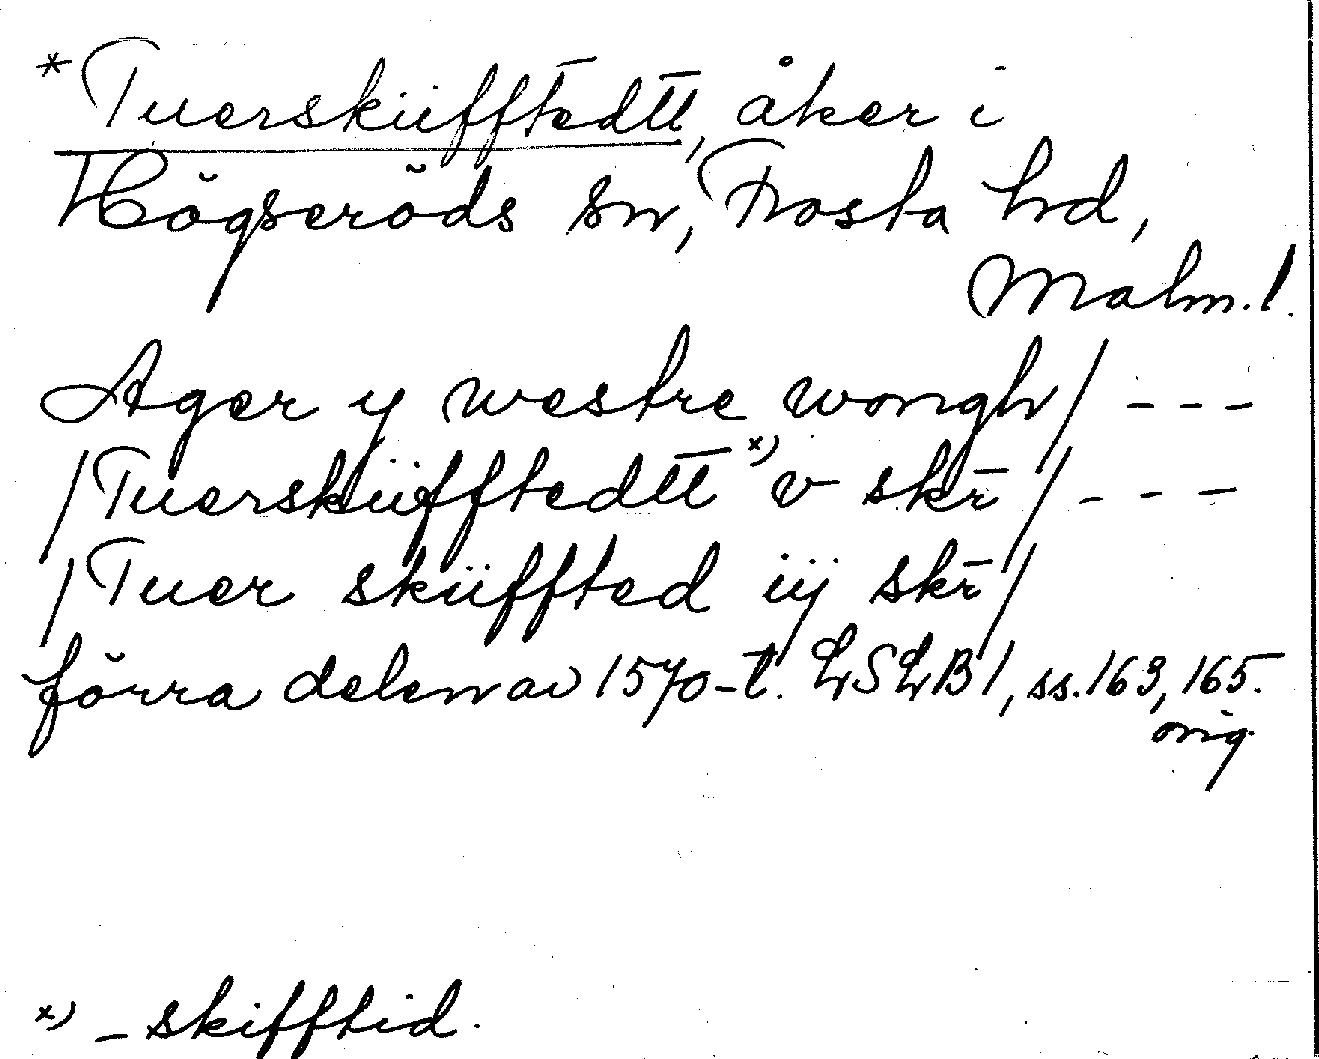 *Tuerskiifftedtt, åker i
Högseröds sn, Frosta hd,
Malm. l.
Ager y westre wongh/ ---
/Tuerskiifftedtt x) v skr̄ / ---
/Tuer skiiffted iij skr̄ /
förra delen av 1570-t. LSLB I, ss. 163, 165.
orig.
x) -skifftid.